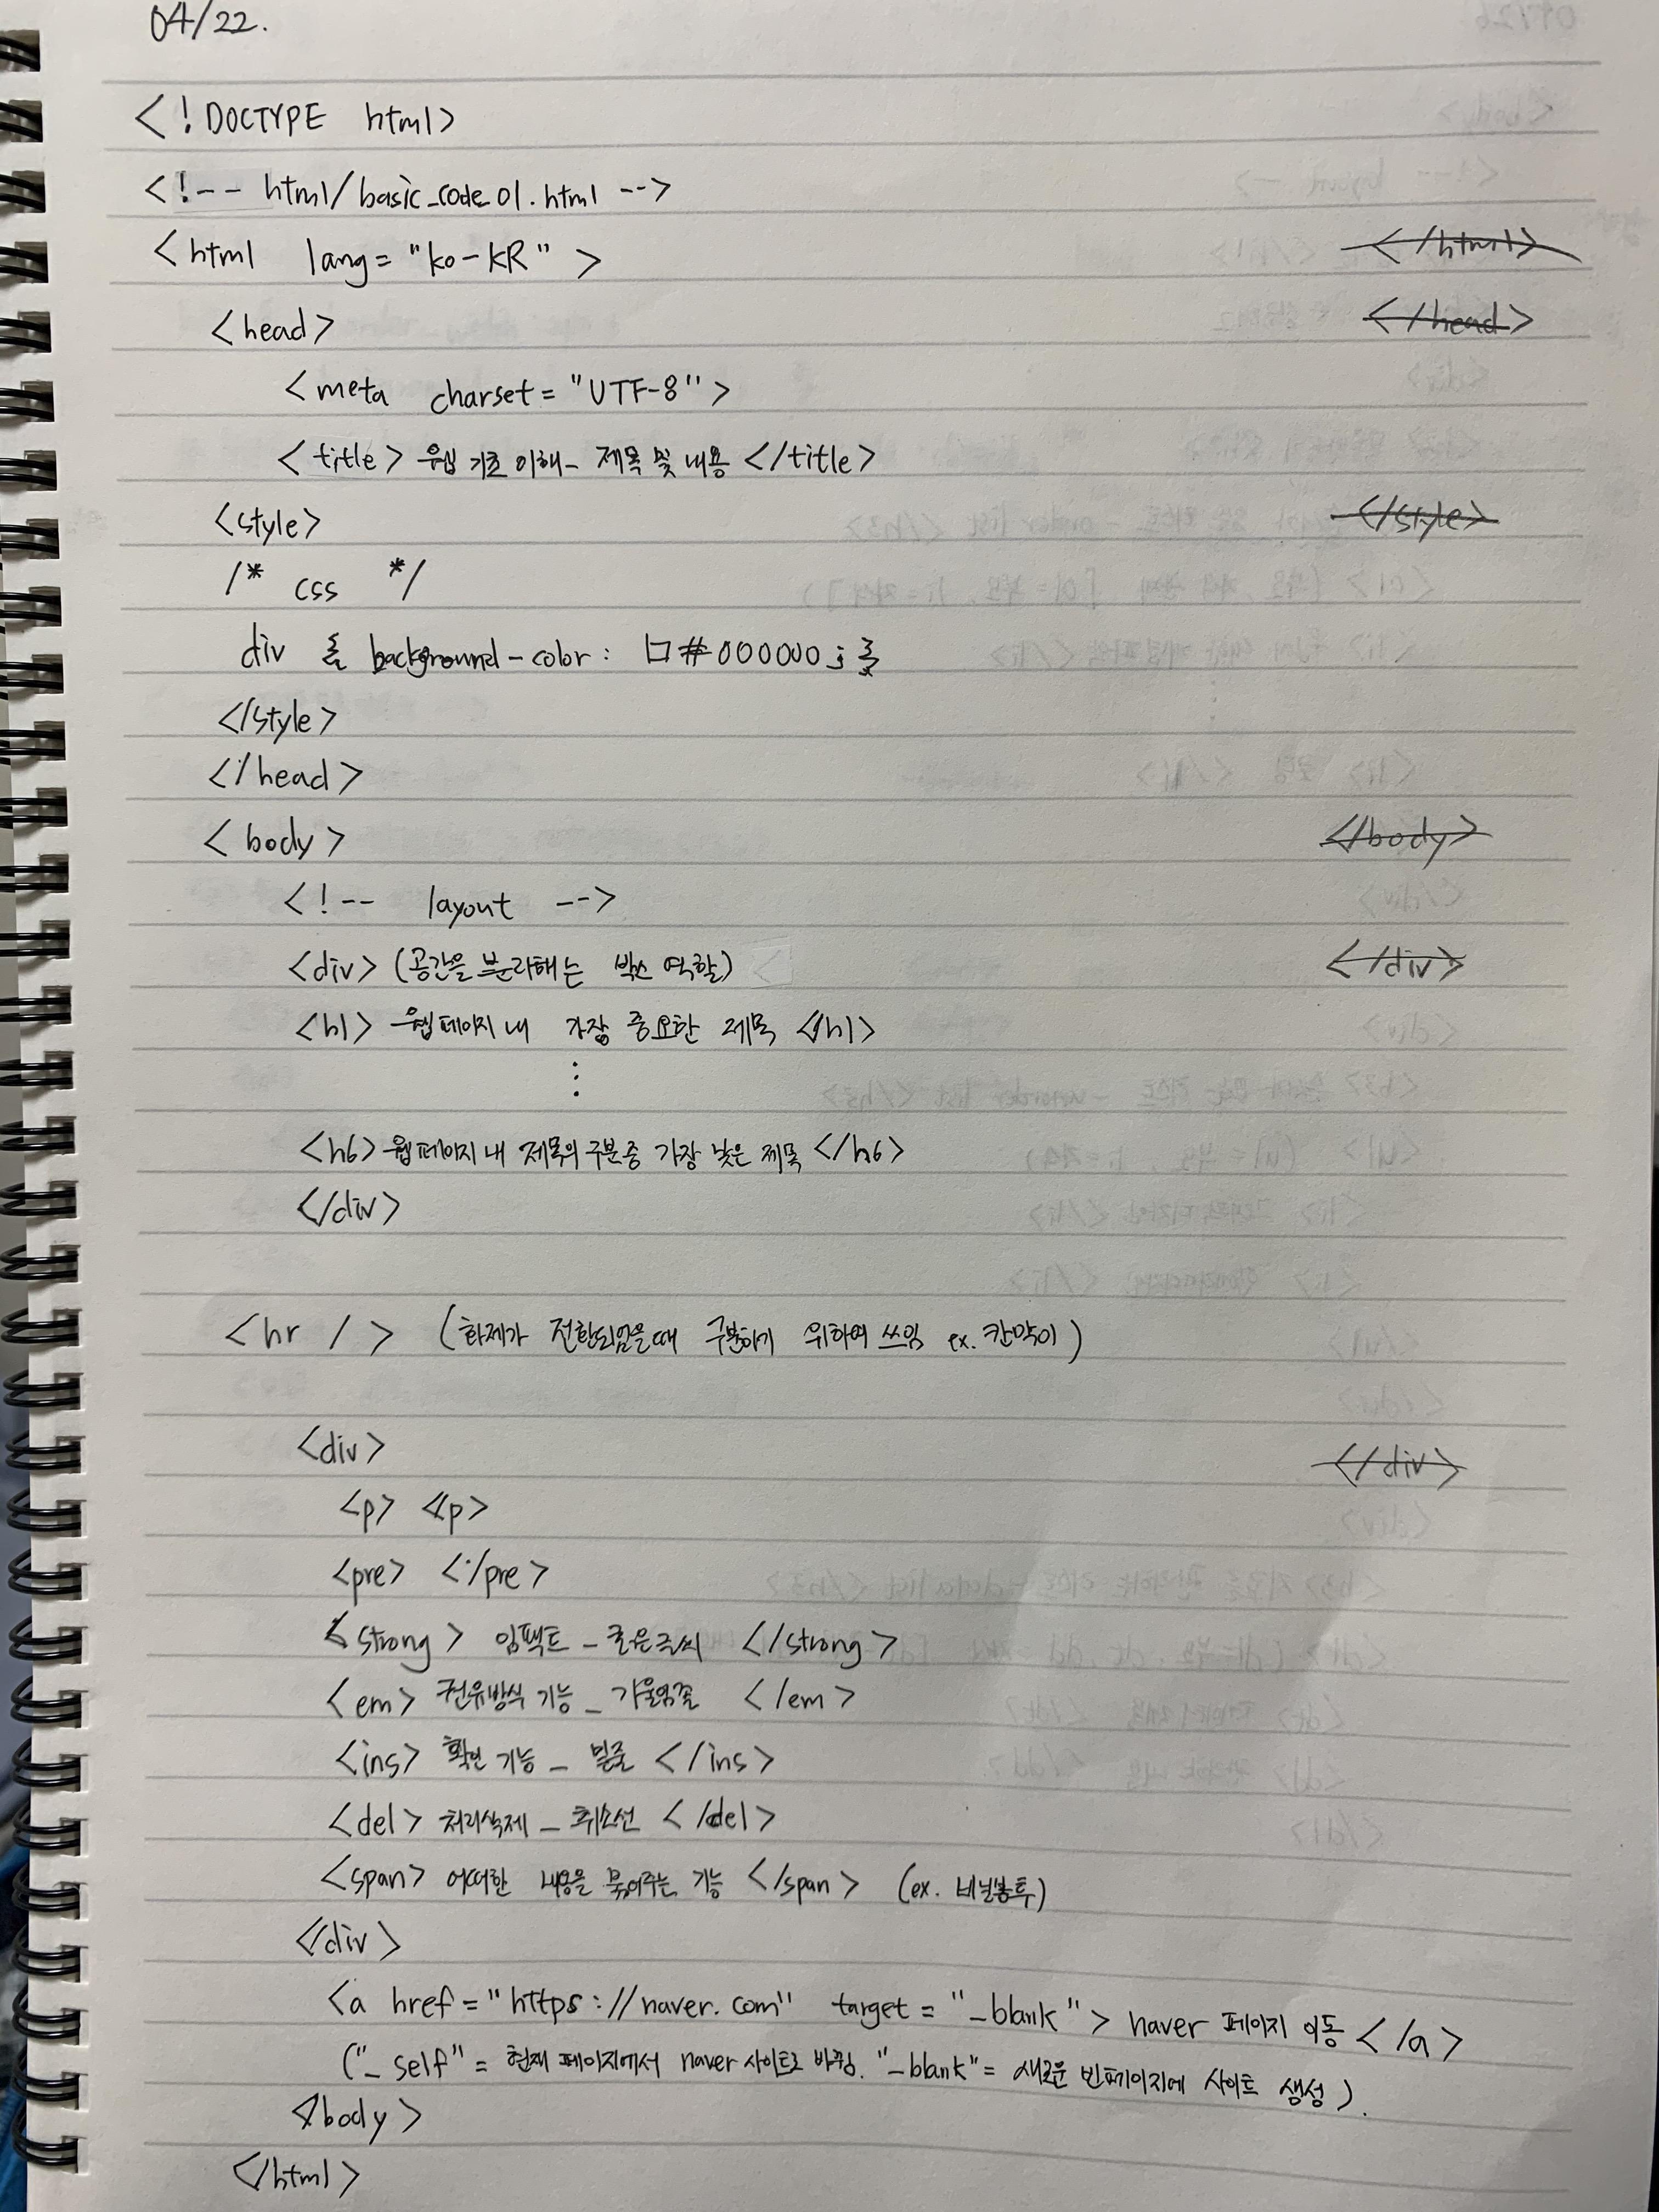 04/22.
<!DOCTYPE html>
<!-- html/basic_code_01.html -->
<html lang="ko-KR" > </html>
<head> </head>
<meta charset="UTF-8">
<title> 웹 기초 이해_ 제목 및 내용 </title>
<style> </style>
/* css */
div { background-color: □#000000;}
</style>
</head>
<body> </body>
<!-- layout -->
<div> (공간을 분리해는 박스 역할) </div>
<h1> 웹페이지 내 가장 중요한 제목 </h1>
⋮
<h6> 웹페이지 내 제목의 구분 중 가장 낮은 제목 </h6>
</div>
<hr /> (화제가 전환되었을때 구분하기 위하여 쓰임 ex. 칸막이)
<div> </div>
<p> </p>
<pre> </pre>
<strong> 임팩트 _ 굵은글씨 </strong>
<em> 기능 _ </em>
<ins> 확인 기능 _ 밑줄 </ins>
<del> 처리삭제 _ 취소선 </del>
<span> 어떠한 내용을 묶어주는 기능 </span> (ex. 비닐봉투)
</div>
<a href="https://naver.com" target="_blank"> naver 페이지 이동 </a>
("_self" = 현재 페이지에서 naver 사이트로 바뀜. "_blank"= 새로운 빈페이지에 사이트 생성).
</body>
</html>